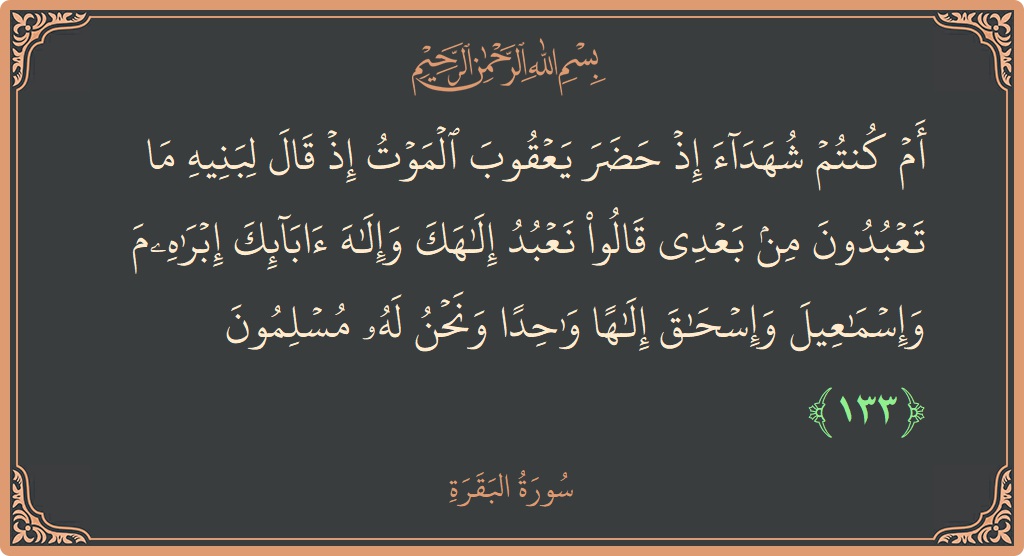 بِسْمِ اللهِ الرَّحْمٰنِ الرَّحِيْمِ
أَمۡ كُنتُمۡ شُهَدَآءَ إِذۡ حَضَرَ يَعۡقُوبَ ٱلۡمَوۡتُ إِذۡ قَالَ لِبَنِيهِ مَا
تَعۡبُدُونَ مِنۢ بَعۡدِى قَالُواْ نَعۡبُدُ إِلَٰهَكَ وَإِلَٰهَ ءَابَآئِكَ إِبۡرَٰهِۦمَ
وَإِسۡمَٰعِيلَ وَإِسۡحَٰقَ إِلَٰهًا وَٰحِدًا وَنَحۡنُ لَهُۥ مُسۡلِمُونَ
﴿١٣٣﴾
سُورَةُ البَقَرَةِ